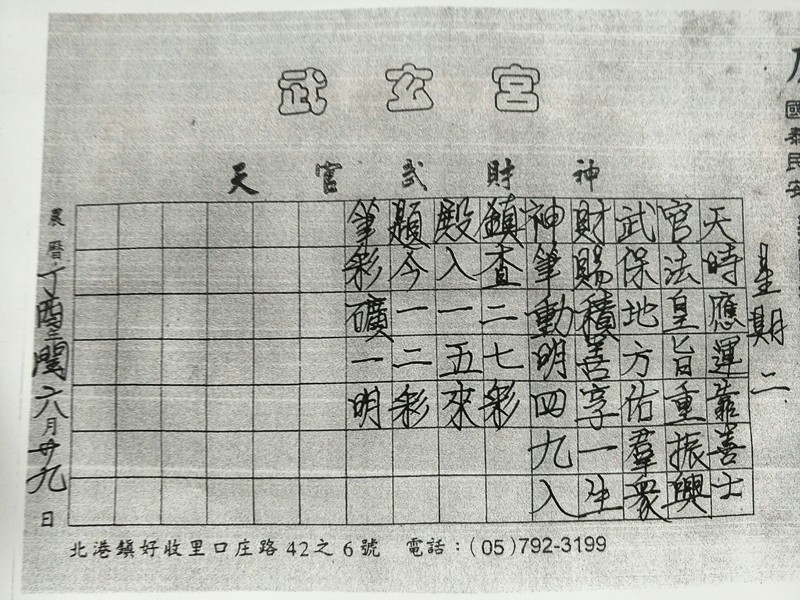 武玄宮
天官武財神
國泰民安
星期二
天時應運靠善士
官法皇旨重振興
武保地方佑羣眾
財賜積善享一生
神筆動明四九入
鎮查二七彩
殿入一五來
顯今一二彩
筆彩礦一明
農曆丁酉年閏六月廿九日
北港鎮好收里口庄路42之6號 電話：(05)792-3199